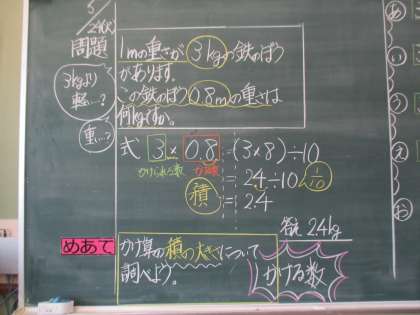 5/24(火)
問題
1mの重さが3kgの鉄のぼう
があります。
この鉄のぼう0.8mの重さは
何kgですか。
3kgより
軽い…?
重い…?
式 3×0.8=(3×8)÷10
かけられる数 かける数
=24÷10 1/10
積 =2.4
答え 2.4kg
めあて
かけ算の積の大きさについて
調べよう。
かける数
あ
い
う